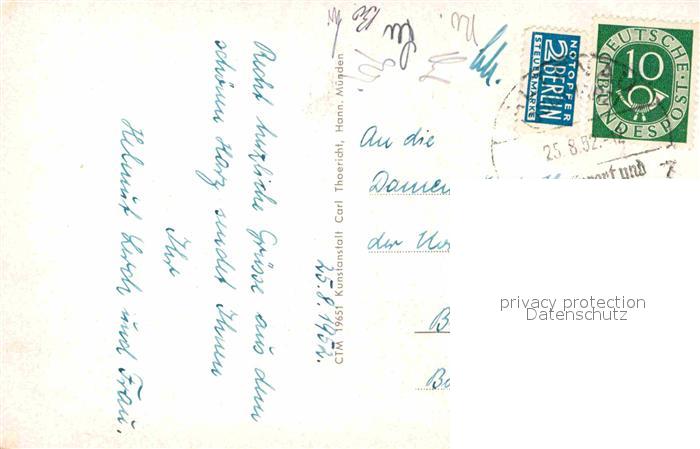 Recht herzliche Grüsse aus dem
schönen Harz sendet Ihnen
Ihr
Helmut Lerch und Frau.
25.8.1952.
CTM 19651 Kunstanstalt Carl Thoericht, Hann. Münden
NOTOPFER
2 BERLIN
STEUERMARKE
DEUTSCHE
10
BUNDESPOST
25.8.52.
und
An die
Damen
der
privacy protection
Datenschutz